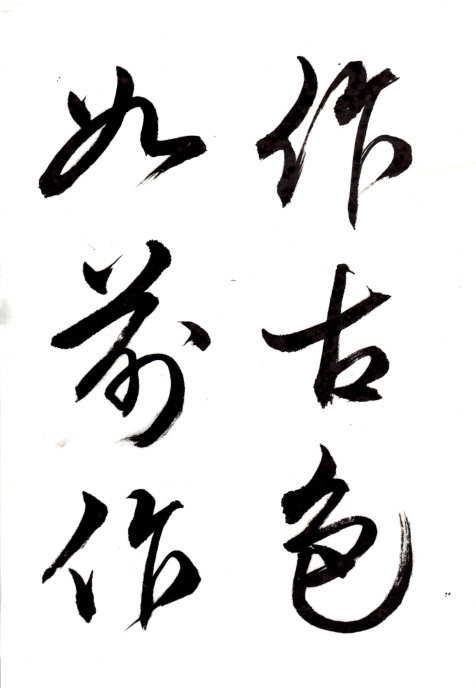 作古色
如前作